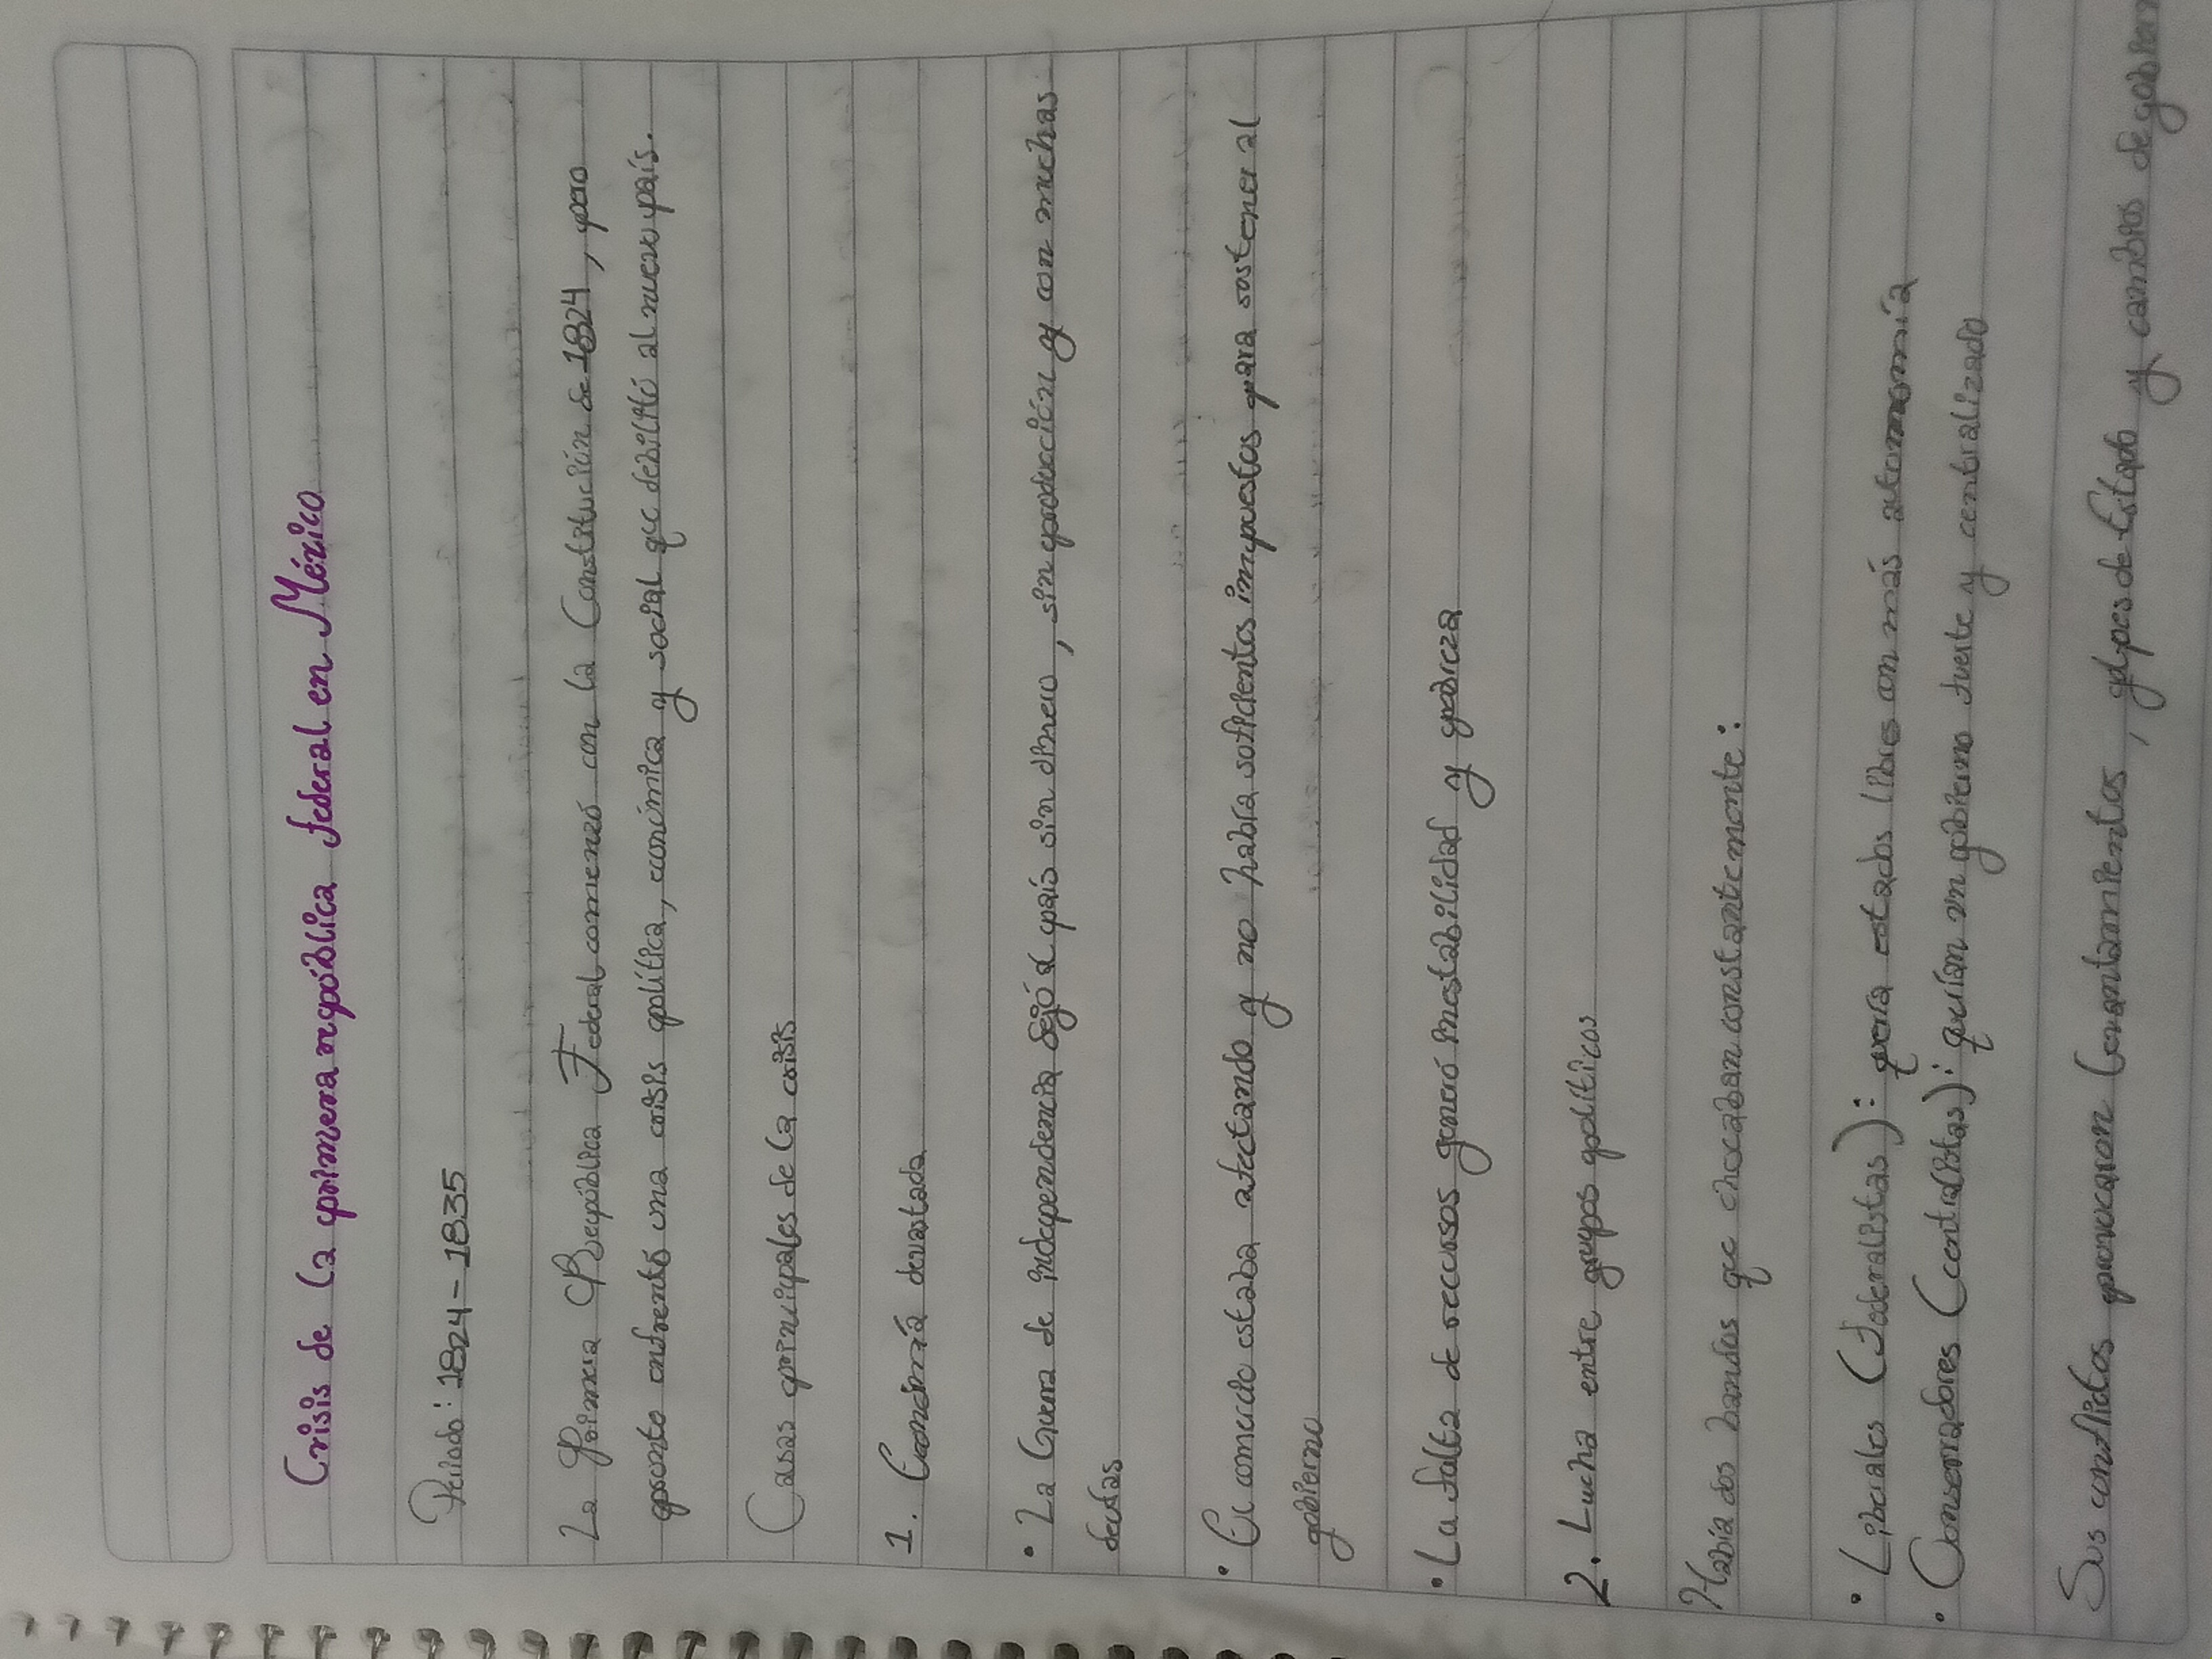 Crisis de la primera república federal en México
Periodo: 1824-1835
La Primera República Federal comenzó con la Constitución de 1824, pero
pronto enfrentó una crisis política, económica y social que debilitó al nuevo país.
Causas principales de la crisis
1. Economía devastada
• La Guerra de independencia dejó al país sin dinero, sin producción y con muchas
deudas
• El comercio estaba afectando y no había suficientes impuestos para sostener al
gobierno
• La falta de recursos generó inestabilidad y pobreza
2. Lucha entre grupos políticos
Había dos bandos que chocaban constantemente:
• Liberales (Federalistas): estados libres con más autonomía
• Conservadores (centralistas): querían un gobierno fuerte y centralizado
Sus conflictos provocaron levantamientos, golpes de Estado y cambios de gobiern